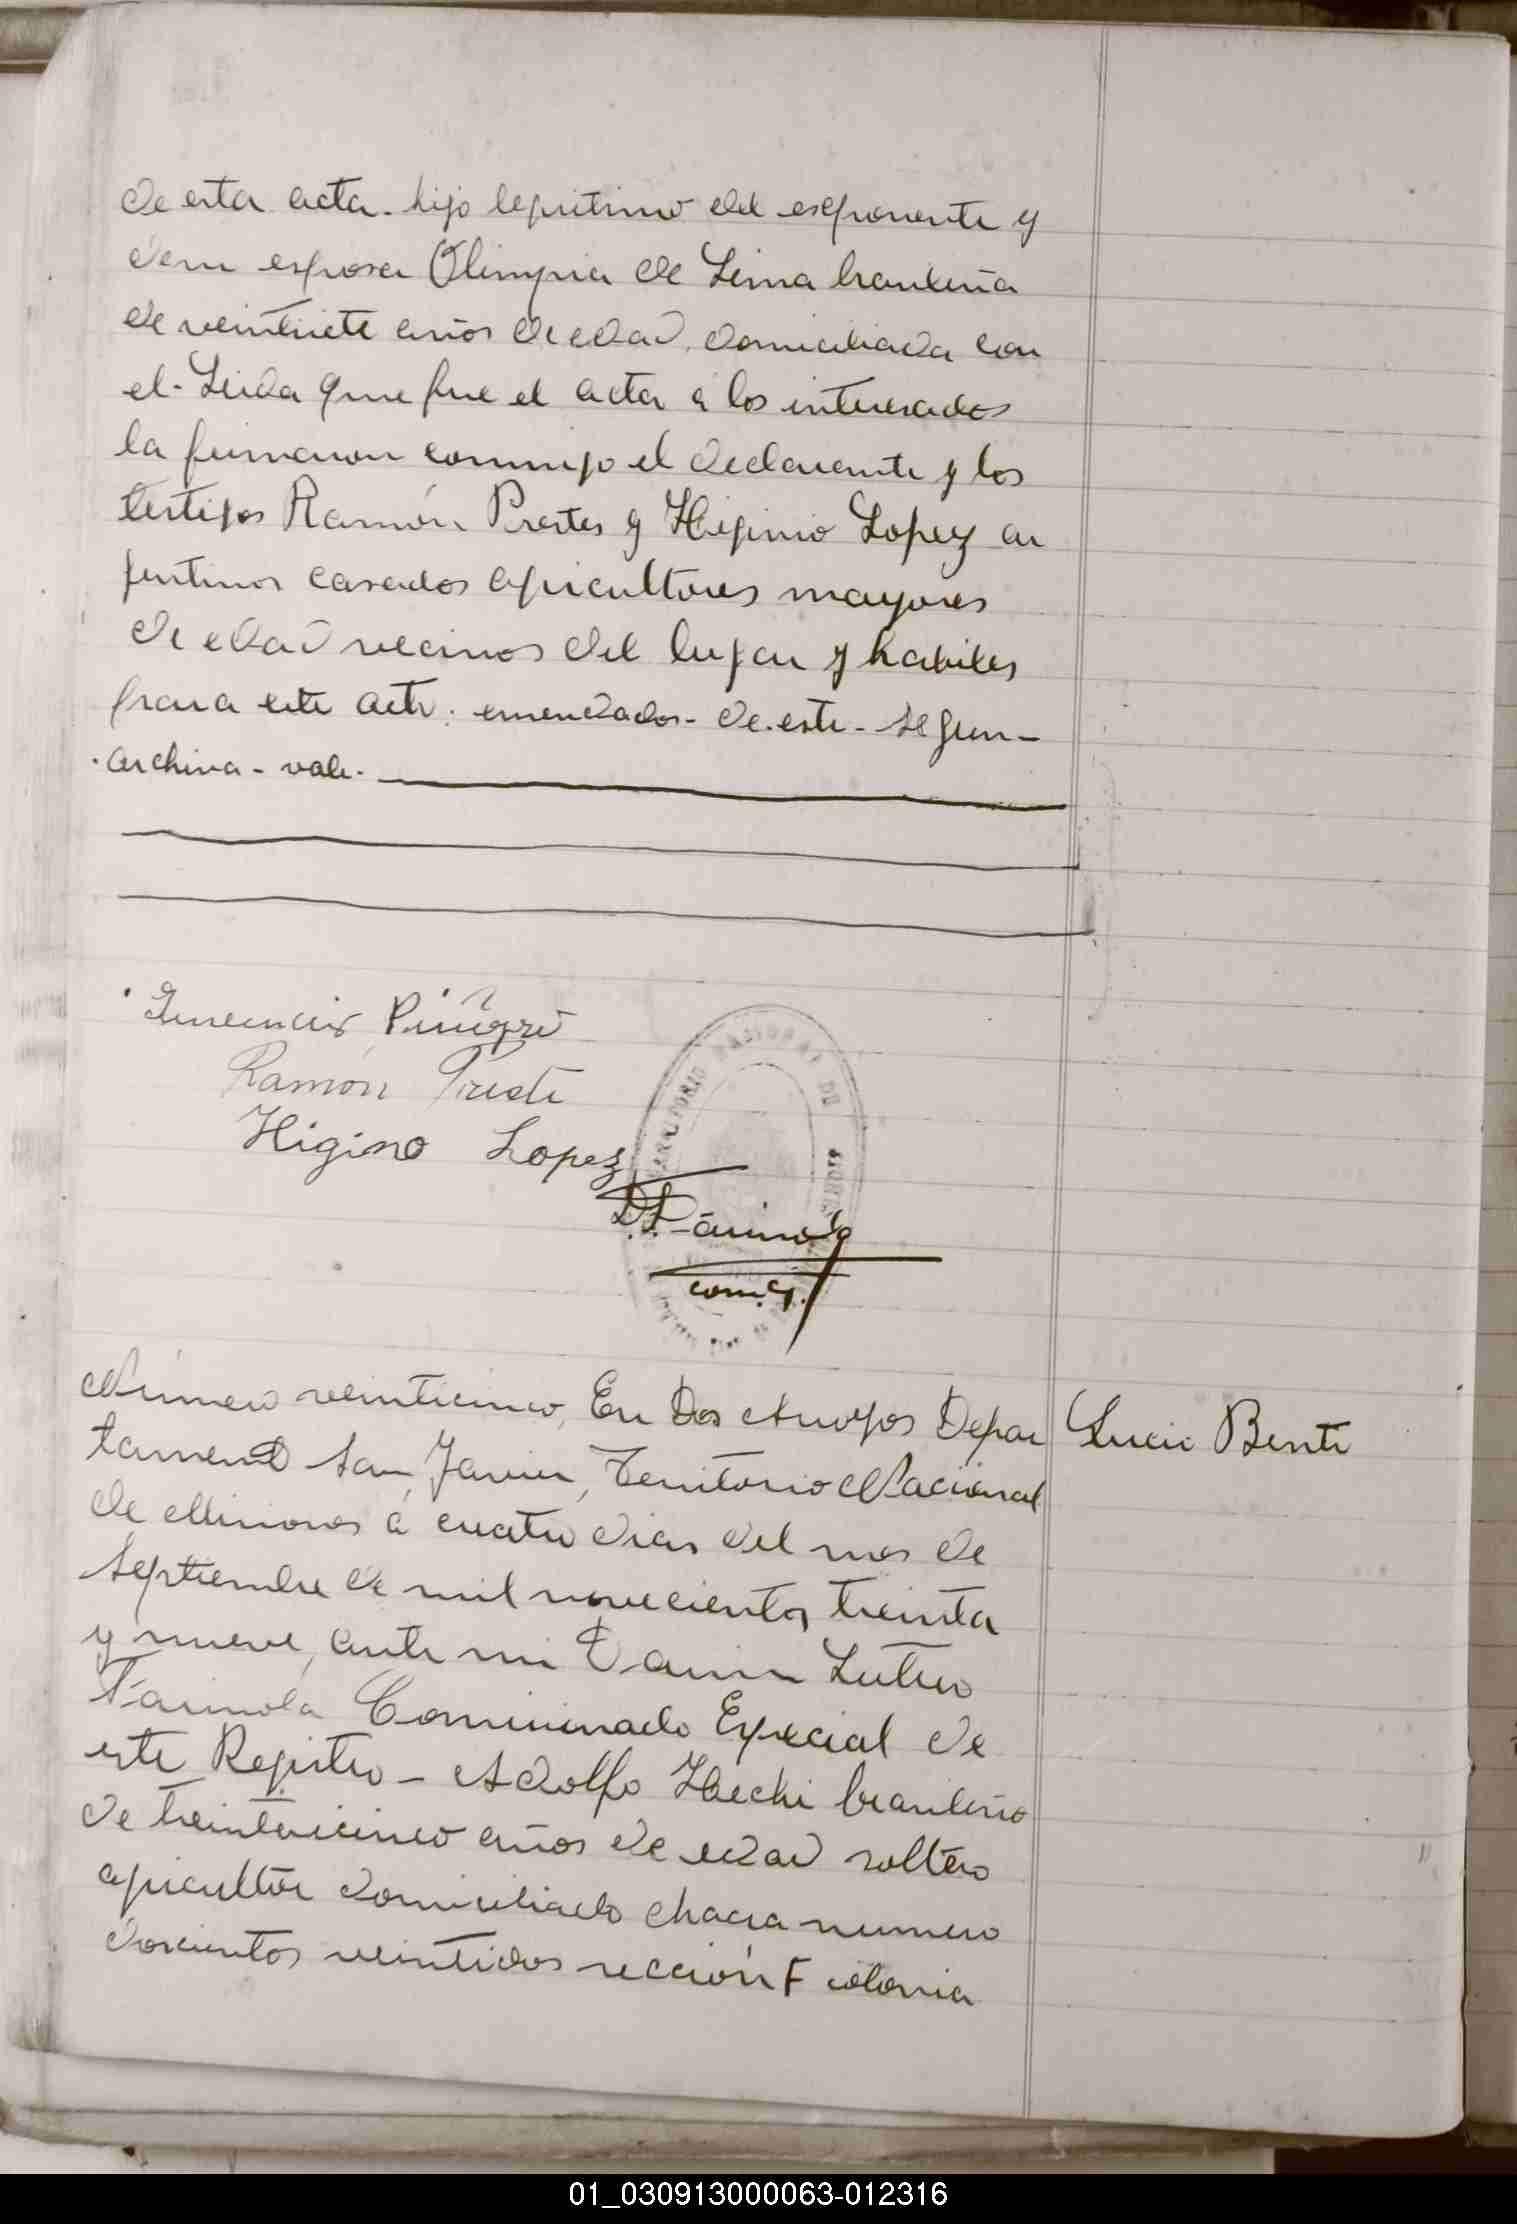 de esta acta. hijo legitimo del esxponente y
de su esposa Olimpia de Lima brasileña
de veintisiete años de edad, domiciliada con
el. Leida que fue el acta á los interesados
la firmaron conmigo el declarante y los
testigos Ramón Prestes y Higinio Lopez ar
gentinos casados agricultores mayores
de edad vecinos del lugar y habiles
para este acto. enmendados - de. este - segun -
archiva - vale.
Ramón Preste
Higino Lopez
TERRITORIO NACIONAL DE MISIONES
D. L. Farinola
Número veinticinco, En Dos Arroyos Depar
tamento San Javier, Territorio Nacional
de Misiones á cuatro dias del mes de
Septiembre de mil novecientos treinta
y nueve, ante mi Darwin Lutero
Farinola Comisionado Especial de
este Registro - Adolfo Hechi brasileño
de treintaicinco años de edad soltero
agricultor domiciliado chacra numero
doscientos veintidos sección F colonia
Lucio Bente
01_030913000063-012316